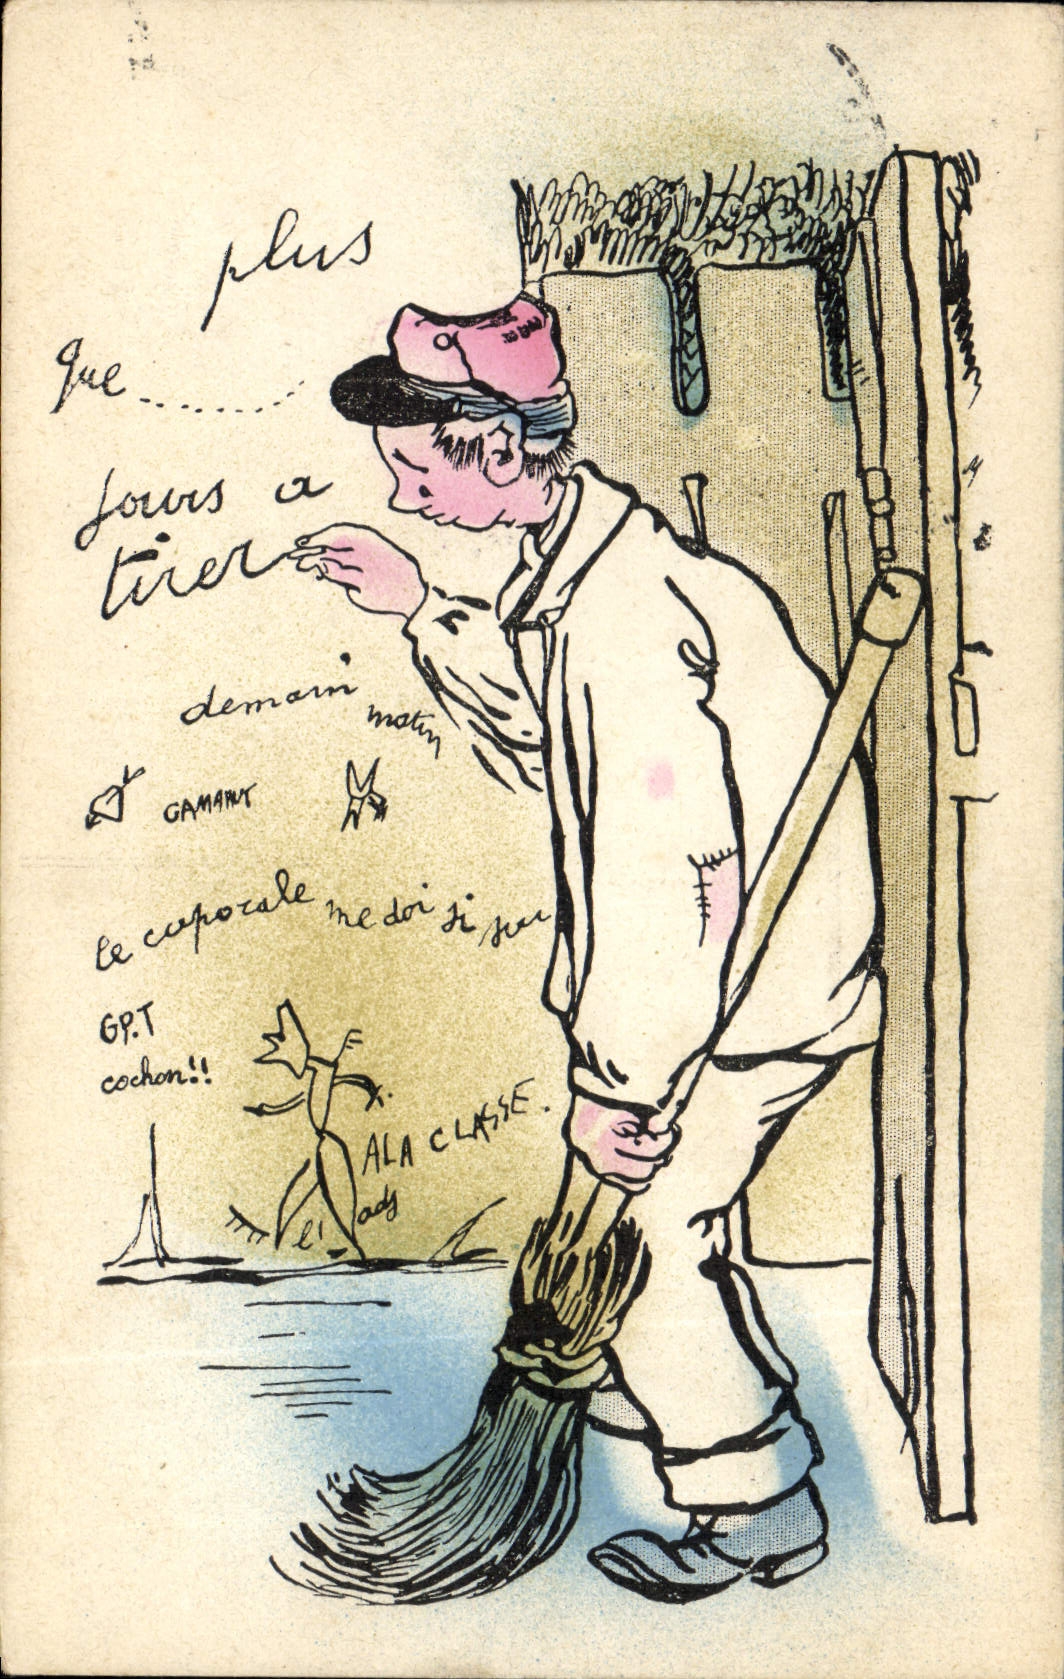 plus
que
jours a
tirer
demain
matin
GAMAHUT
le caporale me doi si sou
GP.T
cochon!!
A LA CLASSE.
l' ads